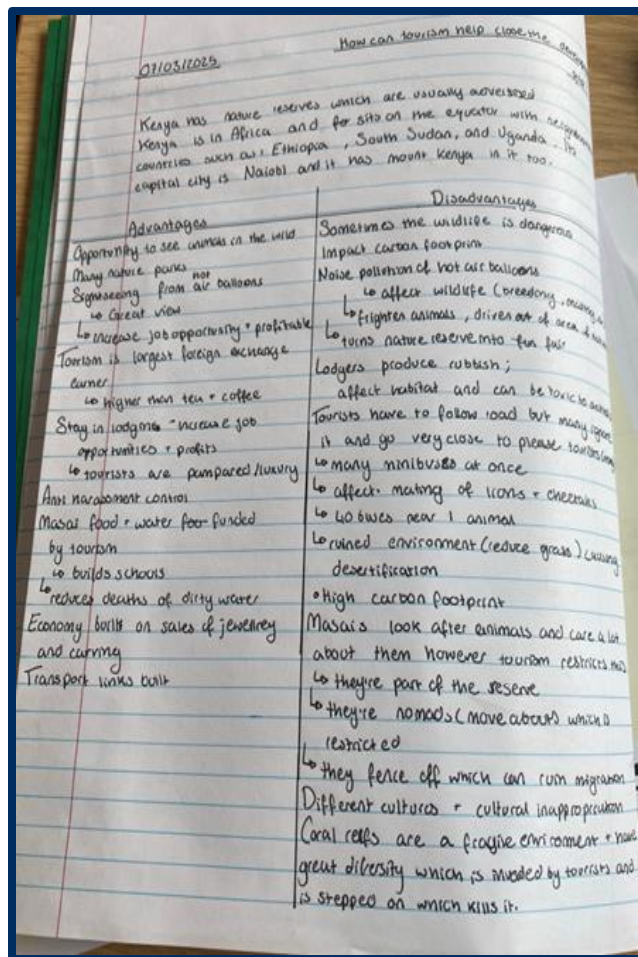 How can tourism help close the
07/03/2025
Kenya has nature reserves which are usually advertised
Kenya is in Africa and sits on the equator with
countries such as: Ethiopia, South Sudan, and Uganda. Its
capital city is Naiobi and it has mount Kenya in it too.
Advantages
Opportunity to see animals in the wild
Many nature parks
Sightseeing from hot air balloons
↳ Great view
↳ increase job opportunity + profitable
Tourism is largest foreign exchange
earner
↳ higher than tea + coffee
Stay in lodgings - increase job
opportunities + profits
↳ tourists are pampered/luxury
Anti harassment control
Masai food + water funded
by tourism
↳ builds schools
↳ reduces deaths of dirty water
Economy built on sales of jewellrey
and carving
Transport links built
Disadvantages
Sometimes the wildlife is dangerous
Impact carbon footprint
Noise pollution of hot air balloons
↳ affect wildlife (breeding,
↳ frighten animals, driven out of area
↳ turns nature reserve into fun fair
Lodgers produce rubbish;
affect habitat and can be toxic to
Tourists have to follow road but many ignore
it and go very close to please tourists
↳ many minibuses at once
↳ affect mating of lions + cheetahs
↳ 40 buses near 1 animal
↳ ruined environment (reduce grass) causing
desertification
• High carbon footprint
Masais look after animals and care a lot
about them however tourism restricts this
↳ they're part of the reserve
↳ they're nomads (move about) which is
restricted
↳ they fence off which can ruin migration
Different cultures + cultural inappropriation
Coral reefs are a fragive enviroment + have
great diversity which is invaded by tourists and
is stepped on which kills it.